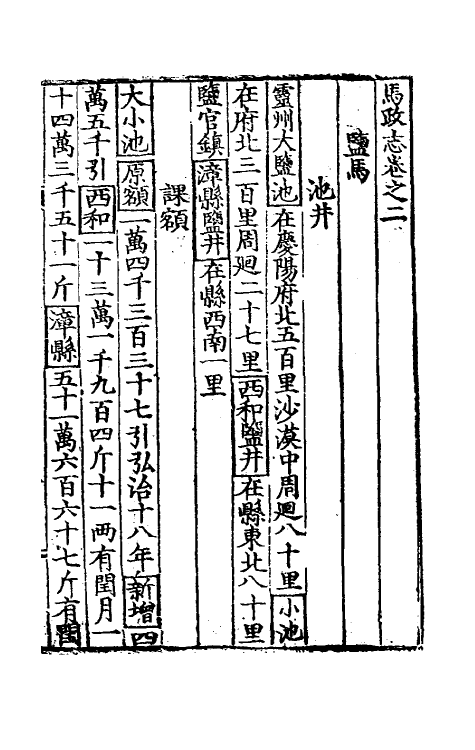 馬政志卷之二
鹽馬
池井
靈州大鹽池在慶陽府北五百里沙漠中周廻八十里小池
在府北三百里周廻二十七里西和鹽井在縣東北八十里
鹽官鎮漳縣鹽井在縣西南一里
課額
大小池原額一萬四千三百三十七引弘治十八年新增四
萬五千引西和一十三萬一千九百四斤十一兩有閏月一
十四萬三千五十一斤漳縣五十一萬六百六十七斤有閏